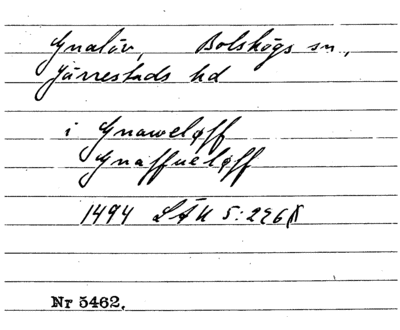 Gnalöv, Bolshögs sn,
Järrestads hd
i Gnaweløff
Gnaffueløff
1494 LÄU 5:296
Nr 5462.